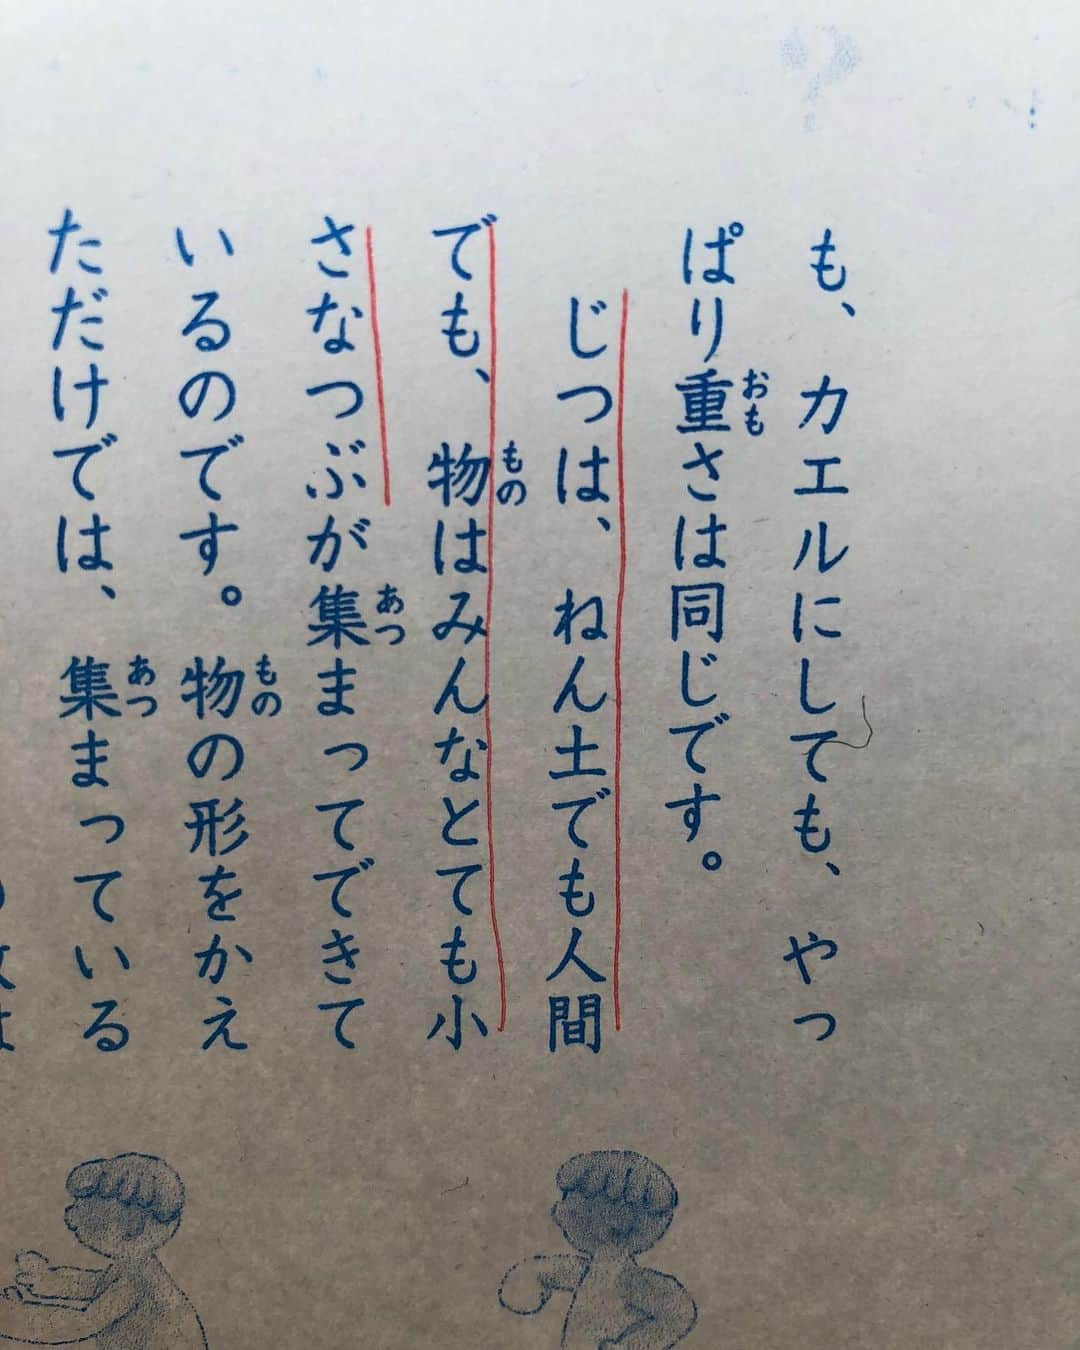 も、カエルにしても、やっ
ぱり重さは同じです。
じつは、ねん土でも人間
でも、物はみんなとても小
さなつぶが集まってできて
いるのです。物の形をかえ
ただけでは、集まっている